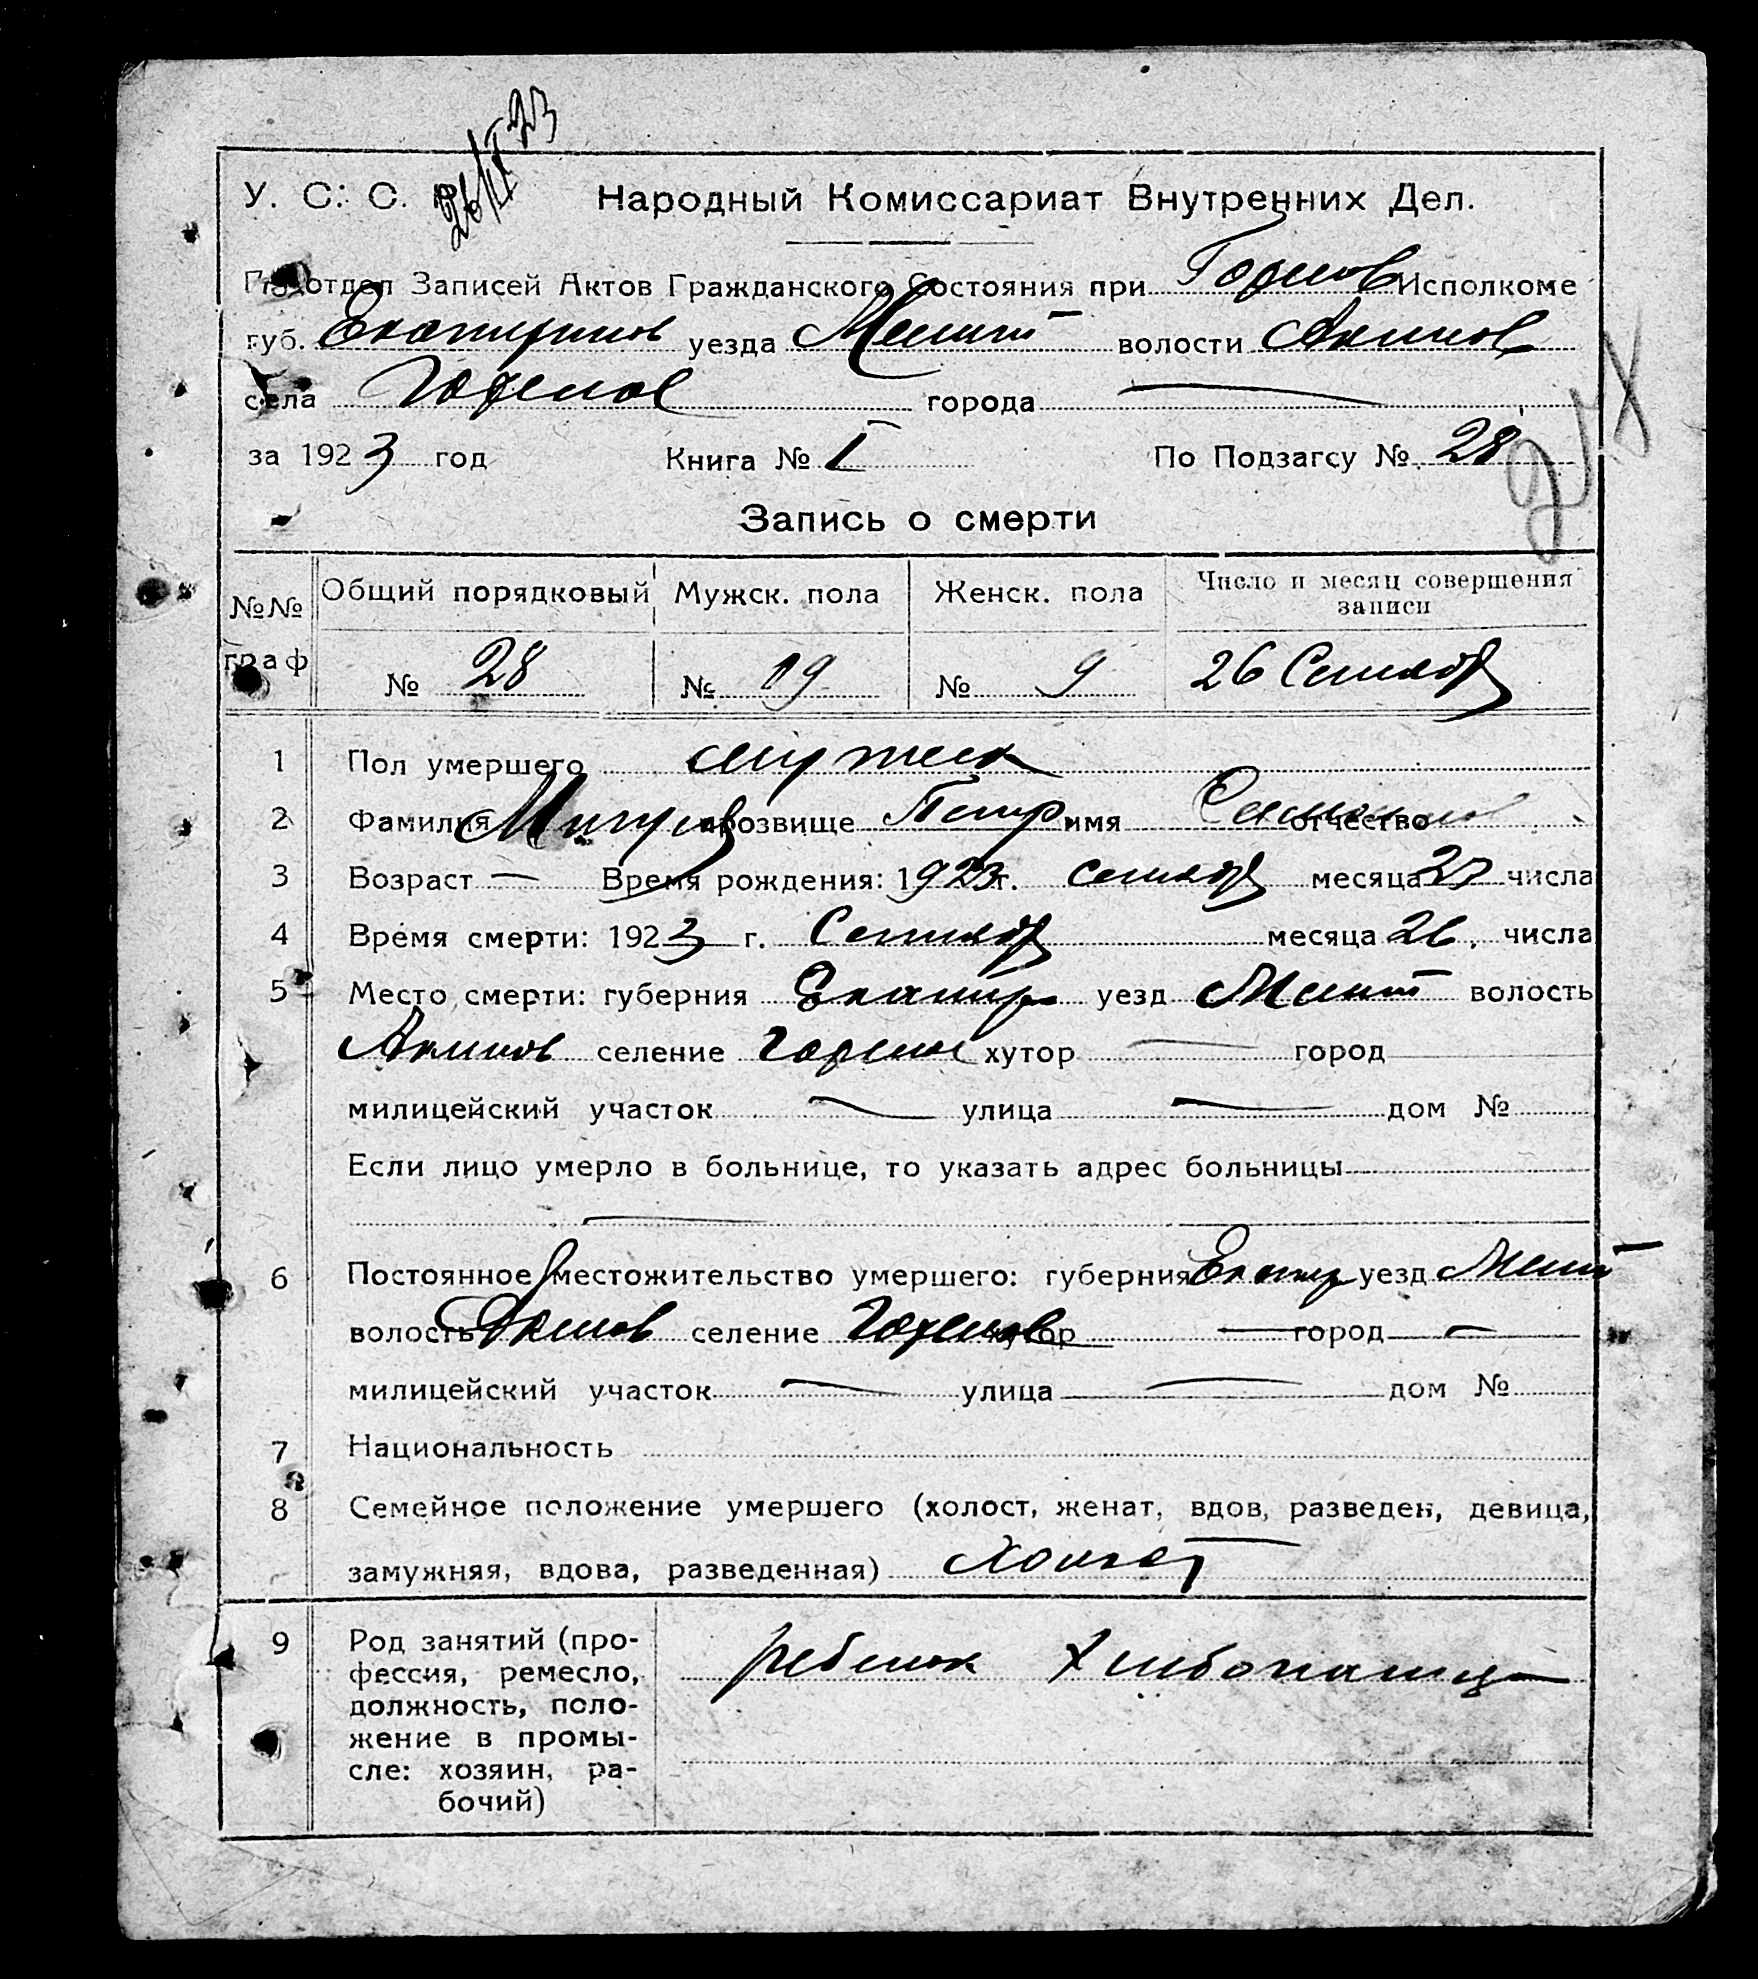 26/IX 23
У. С. С. Народный Комиссариат Внутренних Дел.
Подотдел Записей Актов Гражданского Состояния при Исполкоме
губ. Екатеринов уезда Мелит волости Акимов
села города —
за 1923 год Книга № I По Подзагсу № 28
Запись о смерти
№№ граф Общий порядковый Мужск. пола Женск. пола Число и месяц совершения записи
№ 28 № 19 № 9 26 Сентяб
1 Пол умершего мужск
2 Фамилия прозвище Петр имя отчество
3 Возраст — Время рождения: 1923 г. сентяб месяца числа
4 Время смерти: 1923 г. Сентяб месяца 26 числа
5 Место смерти: губерния Екатер уезд Мелит волость
Акимов селение хутор — город
милицейский участок — улица — дом №
Если лицо умерло в больнице, то указать адрес больницы
—
6 Постоянное местожительство умершего: губерния Екатер уезд Мелит
волость Акимов селение хутор — город —
милицейский участок — улица — дом №
7 Национальность
8 Семейное положение умершего (холост, женат, вдов, разведен, девица,
замужняя, вдова, разведенная) холост
9 Род занятий (про-
фессия, ремесло, ребенок хлебопашца
должность, поло-
жение в промы-
сле: хозяин, ра-
бочий)